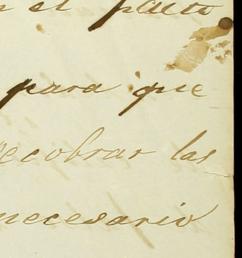 el pacto
para que
recobrar las
necesario